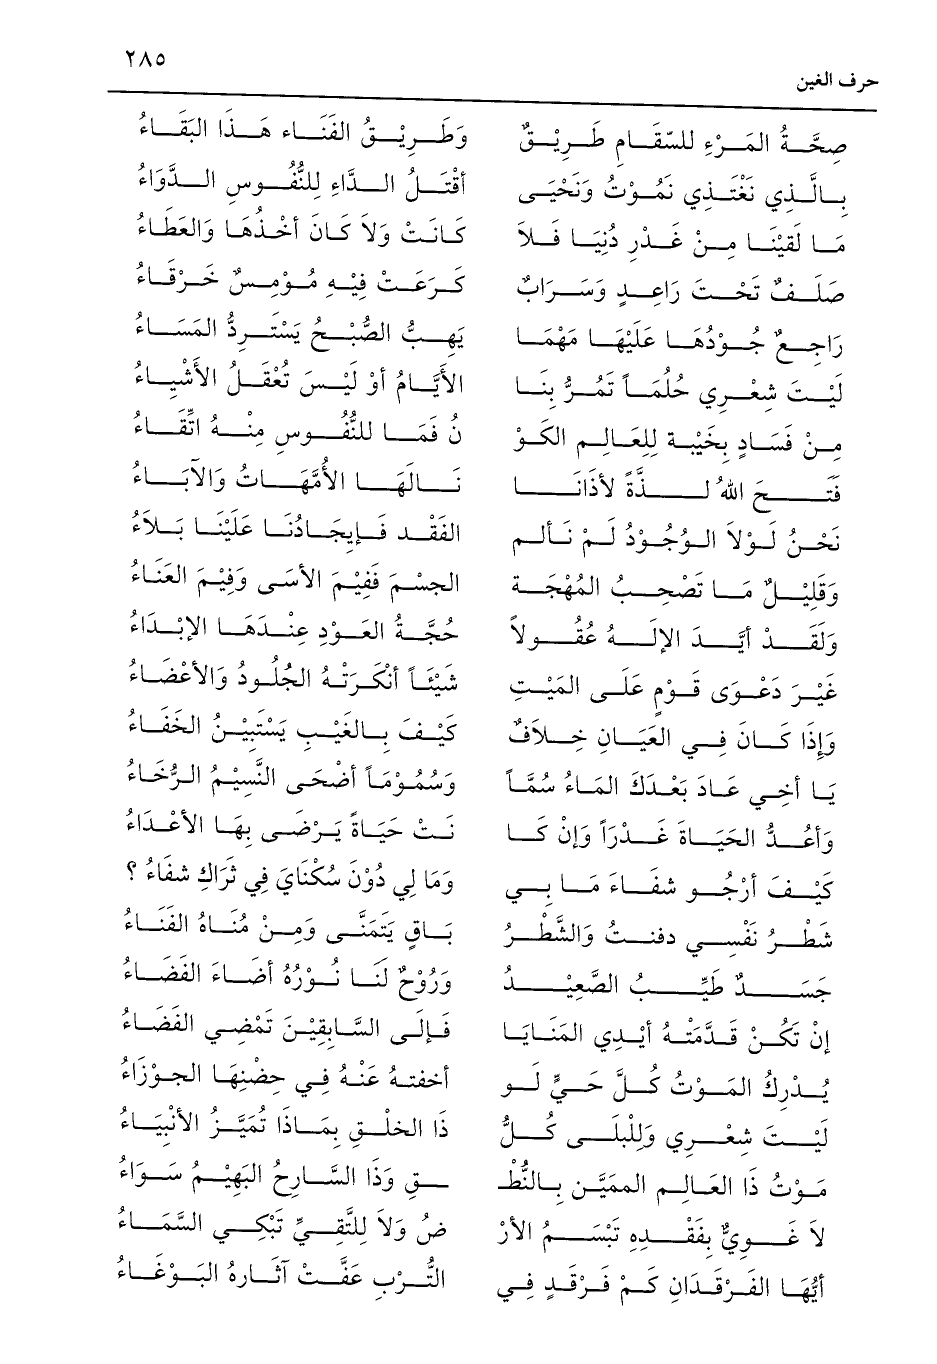 ٢٨٥
حرف الغين
صِحَّةُ المَرْءِ لِلسَّقَامِ طَرِيْقٌ وَطَرِيْقُ الفَنَاءِ هَذَا البَقَاءُ
بِالَّذِي نَغْتَذِي نَمُوْتُ وَنَحْيَى أَقْتَلُ الدَّاءِ لِلنُّفُوسِ الدَّوَاءُ
مَا لَقَيْنَا مِنْ غَدْرِ دُنْيَا فَلاَ كَانَتْ وَلاَ كَانَ أَخْذُهَا وَالعَطَاءُ
صَلَفٌ تَحْتَ رَاعِدٍ وَسَرَابٌ كَرَعَتْ فِيْهِ مُوْمِسٌ خَرْقَاءُ
رَاجِعٌ جُوْدُهَا عَلَيْهَا مَهْمَا يَهَبُ الصُّبْحُ يَسْتَرِدُّ المَسَاءُ
لَيْتَ شِعْرِي حُلُمَاً تَمُرُّ بِنَا الأَيَّامُ أَوْ لَيْسَ تُعْقَلُ الأَشْيَاءُ
مِنْ فَسَادٍ يَجْنِيْهِ لِلْعَالَمِ الكَوْ نُ فَمَا لِلنُّفُوسِ مِنْهُ اتِّقَاءُ
قَبَّحَ اللهُ لَذَّةً لأَذَانَا نَالَهَا الأُمَّهَاتُ وَالآبَاءُ
نَحْنُ لَوْلاَ الوُجُوْدُ لَمْ نَأْلَمِ الفَقْدَ فَإِيجَادُنَا عَلَيْنَا بَلاَءُ
وَقَلِيْلٌ مَا تَصْحَبُ المُهْجَةُ الجِسْمَ فَفِيْمَ الأَسَى وَفِيْمَ العَنَاءُ
وَلَقَدْ أَيَّدَ الإِلَهُ عُقُولاً حُجَّةُ العَوْدِ عِنْدَهَا الإِبْدَاءُ
غَيْرَ دَعْوَى قَوْمٍ عَلَى المَيْتِ شَيْئَاً أَنْكَرَتْهُ الجُلُودُ وَالأَعْضَاءُ
وَإِذَا كَانَ فِي العَيَانِ خِلاَفٌ كَيْفَ بِالغَيْبِ يَسْتَبِيْنُ الخَفَاءُ
يَا أَخِي عَادَ بَعْدَكَ المَاءُ سُمَّاً وَسُمُوْمَاً أَضْحَى النَّسِيْمُ الرُّخَاءُ
وَأَعُدُّ الحَيَاةَ غَدْرَاً وَإِنْ كَا نَتْ حَيَاةً يَرْضَى بِهَا الأَعْدَاءُ
كَيْفَ أَرْجُو شِفَاءَ مَا بِي وَمَا لِي دُوْنَ سُكْنَايَ فِي ثَرَاكَ شِفَاءُ ؟
شَطْرُ نَفْسِي دفنتُ وَالشَّطْرُ بَاقٍ يَتَمَنَّى وَمِنْ مُنَاهُ الفَنَاءُ
جَسَدٌ طَيَّبَ الصَّعِيْدُ وَرُوْحٌ لَنَا نُوْرُهُ أَضَاءَ الفَضَاءُ
إِنْ تَكُنْ قَدَّمَتْهُ أَيْدِي المَنَايَا فَإِلَى السَّابِقِيْنَ تَمْضِي القَضَاءُ
يُدْرِكُ المَوْتُ كُلَّ حَيٍّ لَو أخفتهُ عَنْهُ فِي حِضْنِهَا الجَوْزَاءُ
لَيْتَ شِعْرِي وَلِلْبِلَى كُلُّ ذَا الخَلْقِ بِمَاذَا تَمَيَّزَ الأَنْبِيَاءُ
مَوْتُ ذَا العَالِمِ المميَّزِ بِالنُّطْـ ـقِ وَذَا السَّارِحُ البَهِيْمِ سَوَاءُ
لاَ غَوِيٌّ بِفَقْدِهِ تَبْسُمُ الأَرْ ضُ وَلاَ لِلتَّقِيِّ تَبْكِي السَّمَاءُ
أَيُّهَا الفَرْقَدَانِ كَمْ فَرْقَدٍ فِي التُّرْبِ عَفَّتْ آثَارَهُ البَوْغَاءُ